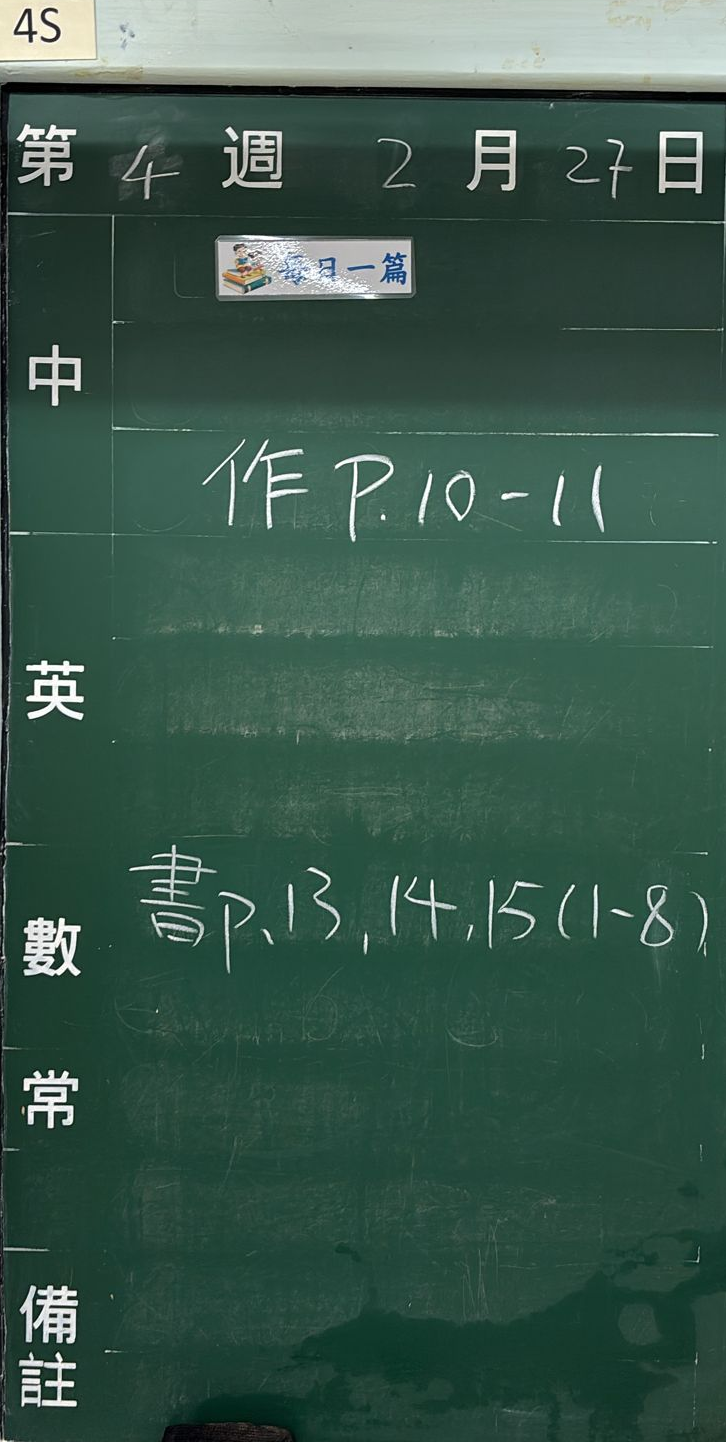 4S
第 4 週 2 月 27 日
每日一篇
中
作 P.10-11
英
書 P.13, 14, 15 (1-8)
數
常
備
註